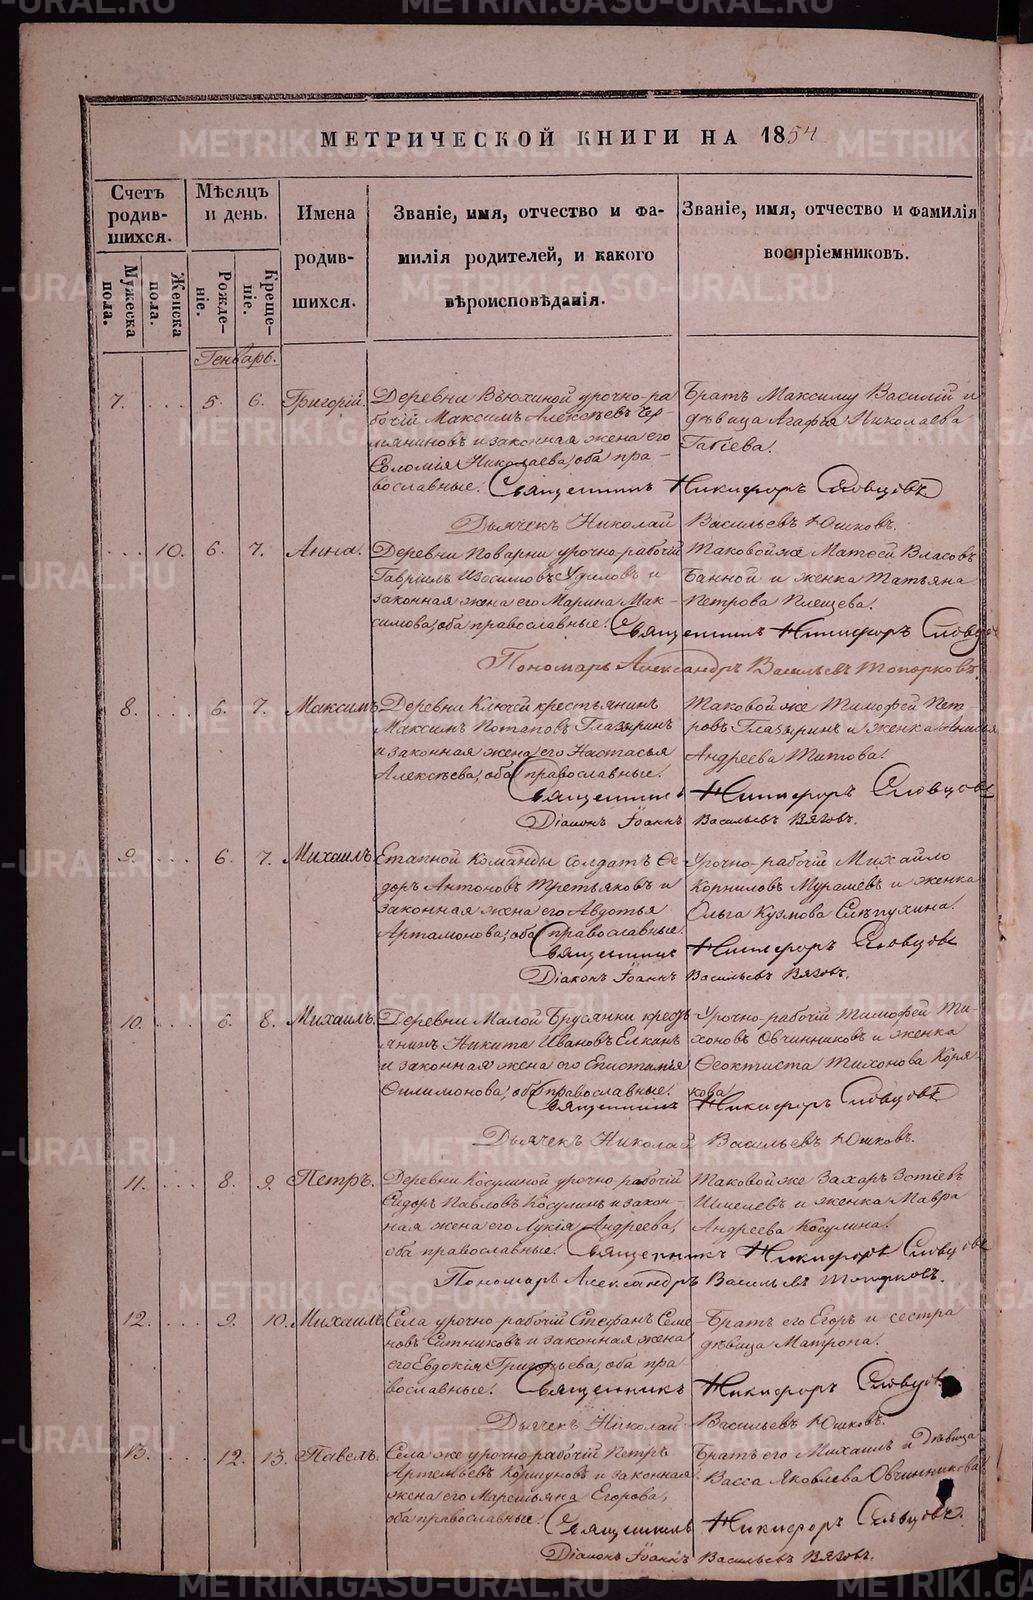 МЕТРИЧЕСКОЙ КНИГИ НА 1854
Счетъ родив-шихся.
Мѣсяцъ и день.
Имена родив-шихся.
Званіе, имя, отчество и фа-
милія родителей, и какого
вѣроисповѣданія.
Званіе, имя, отчество и фамилія
воспріемниковъ.
Мужеска пола.
Женска пола.
Рожде-ніе.
Креще-ніе.
Генварь.
7. ... 5. 6. Григорій.
Деревни Вьюхиной урочно-ра-
бочій Максимъ Алексѣевъ Чер-
мяниновъ и законная жена его
Соломія Николаева, оба пра-
вославные.
Братъ Максиму Василій и
дѣвица Агафья Николаева
Священникъ Никифоръ Словцовъ
Дьячекъ Николай Васильевъ Юшковъ.
... 10. 6. 7. Анна.
Деревни Поварни урочно-рабочій
Гавріилъ Изосимовъ и
законная жена его Марина Мак-
симова, оба православные.
Таковой же Матѳей Власовъ
Банной и женка Татьяна
Петрова Плещева.
Священникъ Никифоръ Словцовъ
Пономарь Александръ Васильевъ Топорковъ.
8. ... 6. 7. Максимъ.
Деревни Ключей крестьянинъ
Максимъ Потаповъ Глазыринъ
и законная жена его Настасья
Алексѣева, оба православные.
Таковой же Тимофей Пет-
ровъ Глазыринъ и женка
Андреева Титова.
Священникъ Никифоръ Словцовъ
Діаконъ Іоаннъ Васильевъ Вяговъ.
9. ... 6. 7. Михаилъ.
Етапной Команды солдатъ Ѳе-
доръ Антоновъ Третьяковъ и
законная жена его Авдотья
Артамонова, оба православные.
Урочно-рабочій Михайло
Корниловъ Мурашевъ и женка
Ольга Кузмова Слѣпухина.
Священникъ Никифоръ Словцовъ
Діаконъ Іоаннъ Васильевъ Вяговъ.
10. ... 6. 8. Михаилъ.
Деревни Малой Брусянки кресть-
янинъ Никита Ивановъ
и законная жена его Епистимія
Филимонова, оба православные.
Урочно-рабочій Тимофей Ти-
хоновъ Овчинниковъ и женка
Ѳеоктиста Тихонова Коря-
кова.
Священникъ Никифоръ Словцовъ
Дьячекъ Николай Васильевъ Юшковъ.
11. ... 8. 9. Петръ.
Деревни Косулиной урочно-рабочій
Сидоръ Павловъ Косулинъ и закон-
ная жена его Лукія Андреева,
оба православные.
Таковой же Захаръ Зотіевъ
Шмелевъ и женка Мавра
Андреева Косулина.
Священникъ Никифоръ Словцовъ
Пономарь Александръ Васильевъ Топорковъ.
12. ... 9. 10. Михаилъ.
Села урочно рабочій Стефанъ Семе-
новъ Ситниковъ и законная жена
его Евдокія Григорьева, оба пра-
вославные.
Братъ его Егоръ и сестра
дѣвица Матрона.
Священникъ Никифоръ Словцовъ
Дьячекъ Николай Васильевъ Юшковъ.
13. ... 12. 13. Павелъ.
Села же урочно рабочій Петръ
Артемьевъ Коршуновъ и законная
жена его Маремьяна Егорова,
оба православные.
Братъ его Михаилъ и дѣвица
Васса Яковлева Овчинникова.
Священникъ Никифоръ Словцовъ.
Діаконъ Іоаннъ Васильевъ Вяговъ.
METRIKI.GASO-URAL.RU